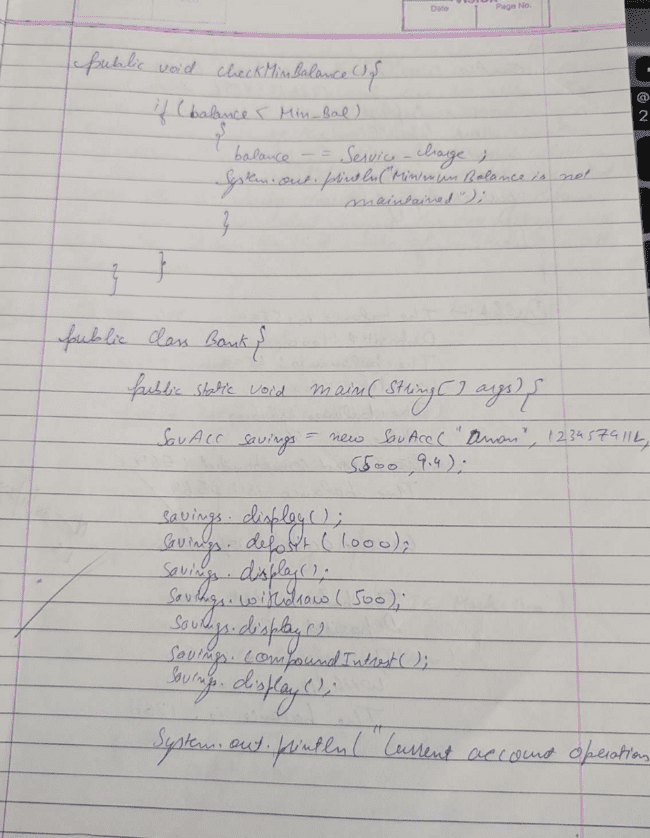 VISION
Date
Page No.
public void checkMinBalance(){
if (balance < Min_Bal)
{
balance -= Service_charge ;
System.out.println("Minimum Balance is not
maintained");
}
}
}
public class Bank{
public static void main(String[] args){
SavAcc savings = new SavAcc(
5500, 9.4);
savings.display();
savings.deposit(1000);
savings.display();
savings.withdraw(500);
savings.display()
savings.compoundIntrest();
savings.display();
System.out.println("Current account operation
@
2